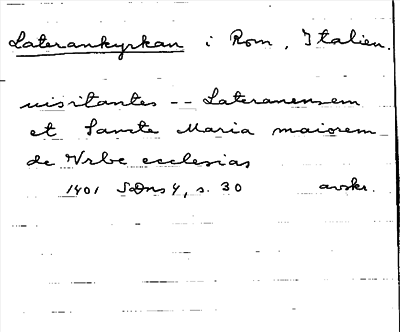 Laterankyrkan i Rom, Italien.
uisitantes -- Lateranensem
et Sancte Maria maiorem
de Vrbe ecclesias
1401 SDns 4, s. 30 avskr.